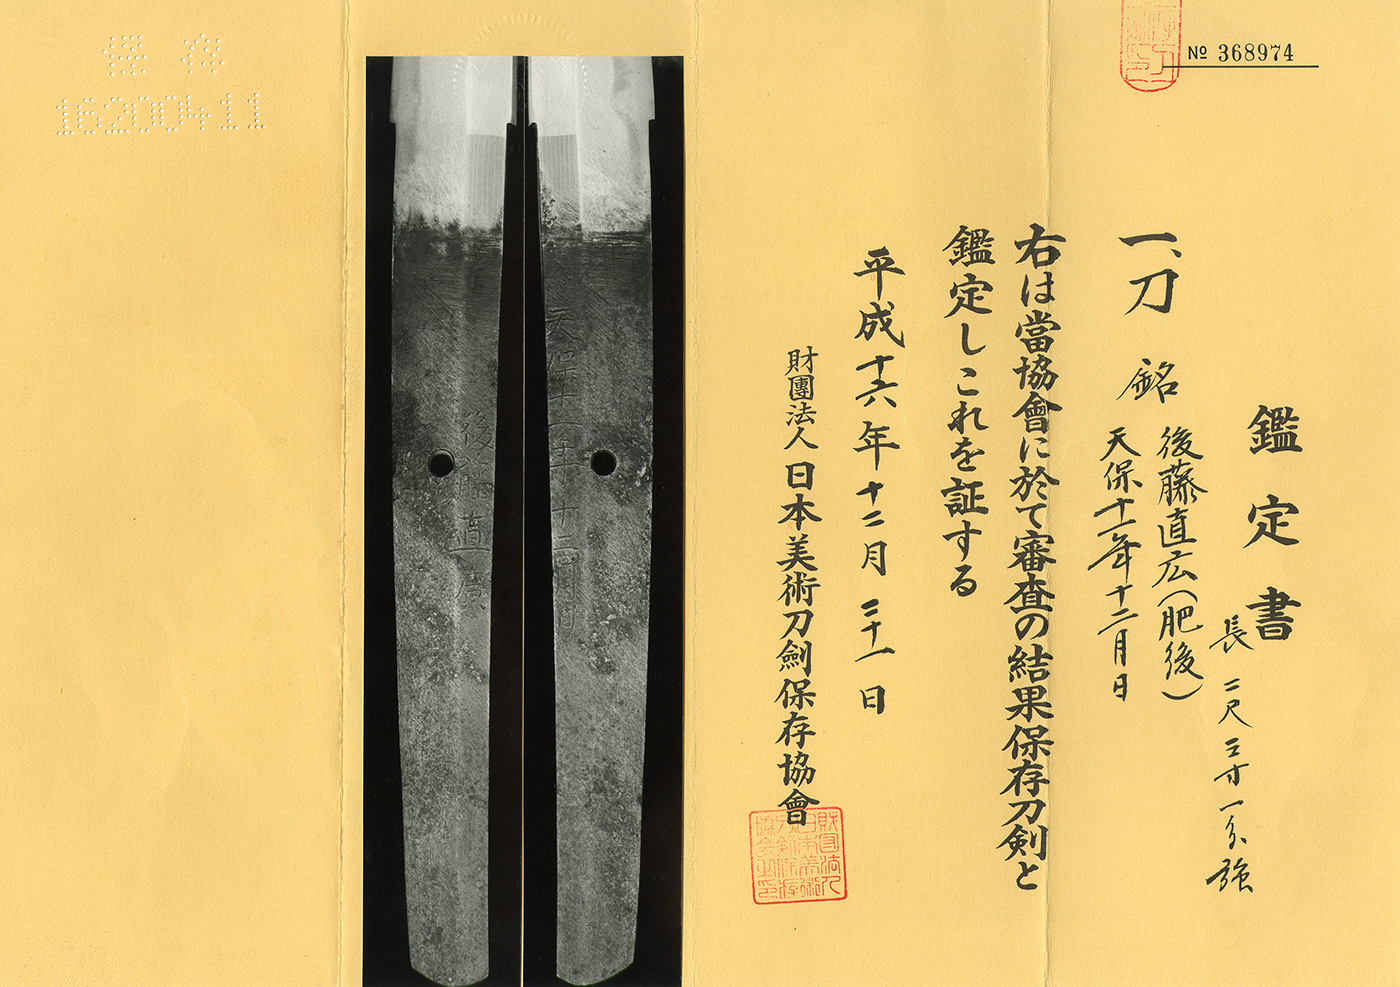 № 368974
鑑定書
一、刀 銘 後藤直広(肥後)
天保十一年十二月日
長 二尺三寸一分強
右は當協會に於て審査の結果保存刀剣と
鑑定しこれを証する
平成十六年十二月二十一日
財團法人 日本美術刀劍保存協會
天保十一年十二月日
後藤直廣
保存
16200411